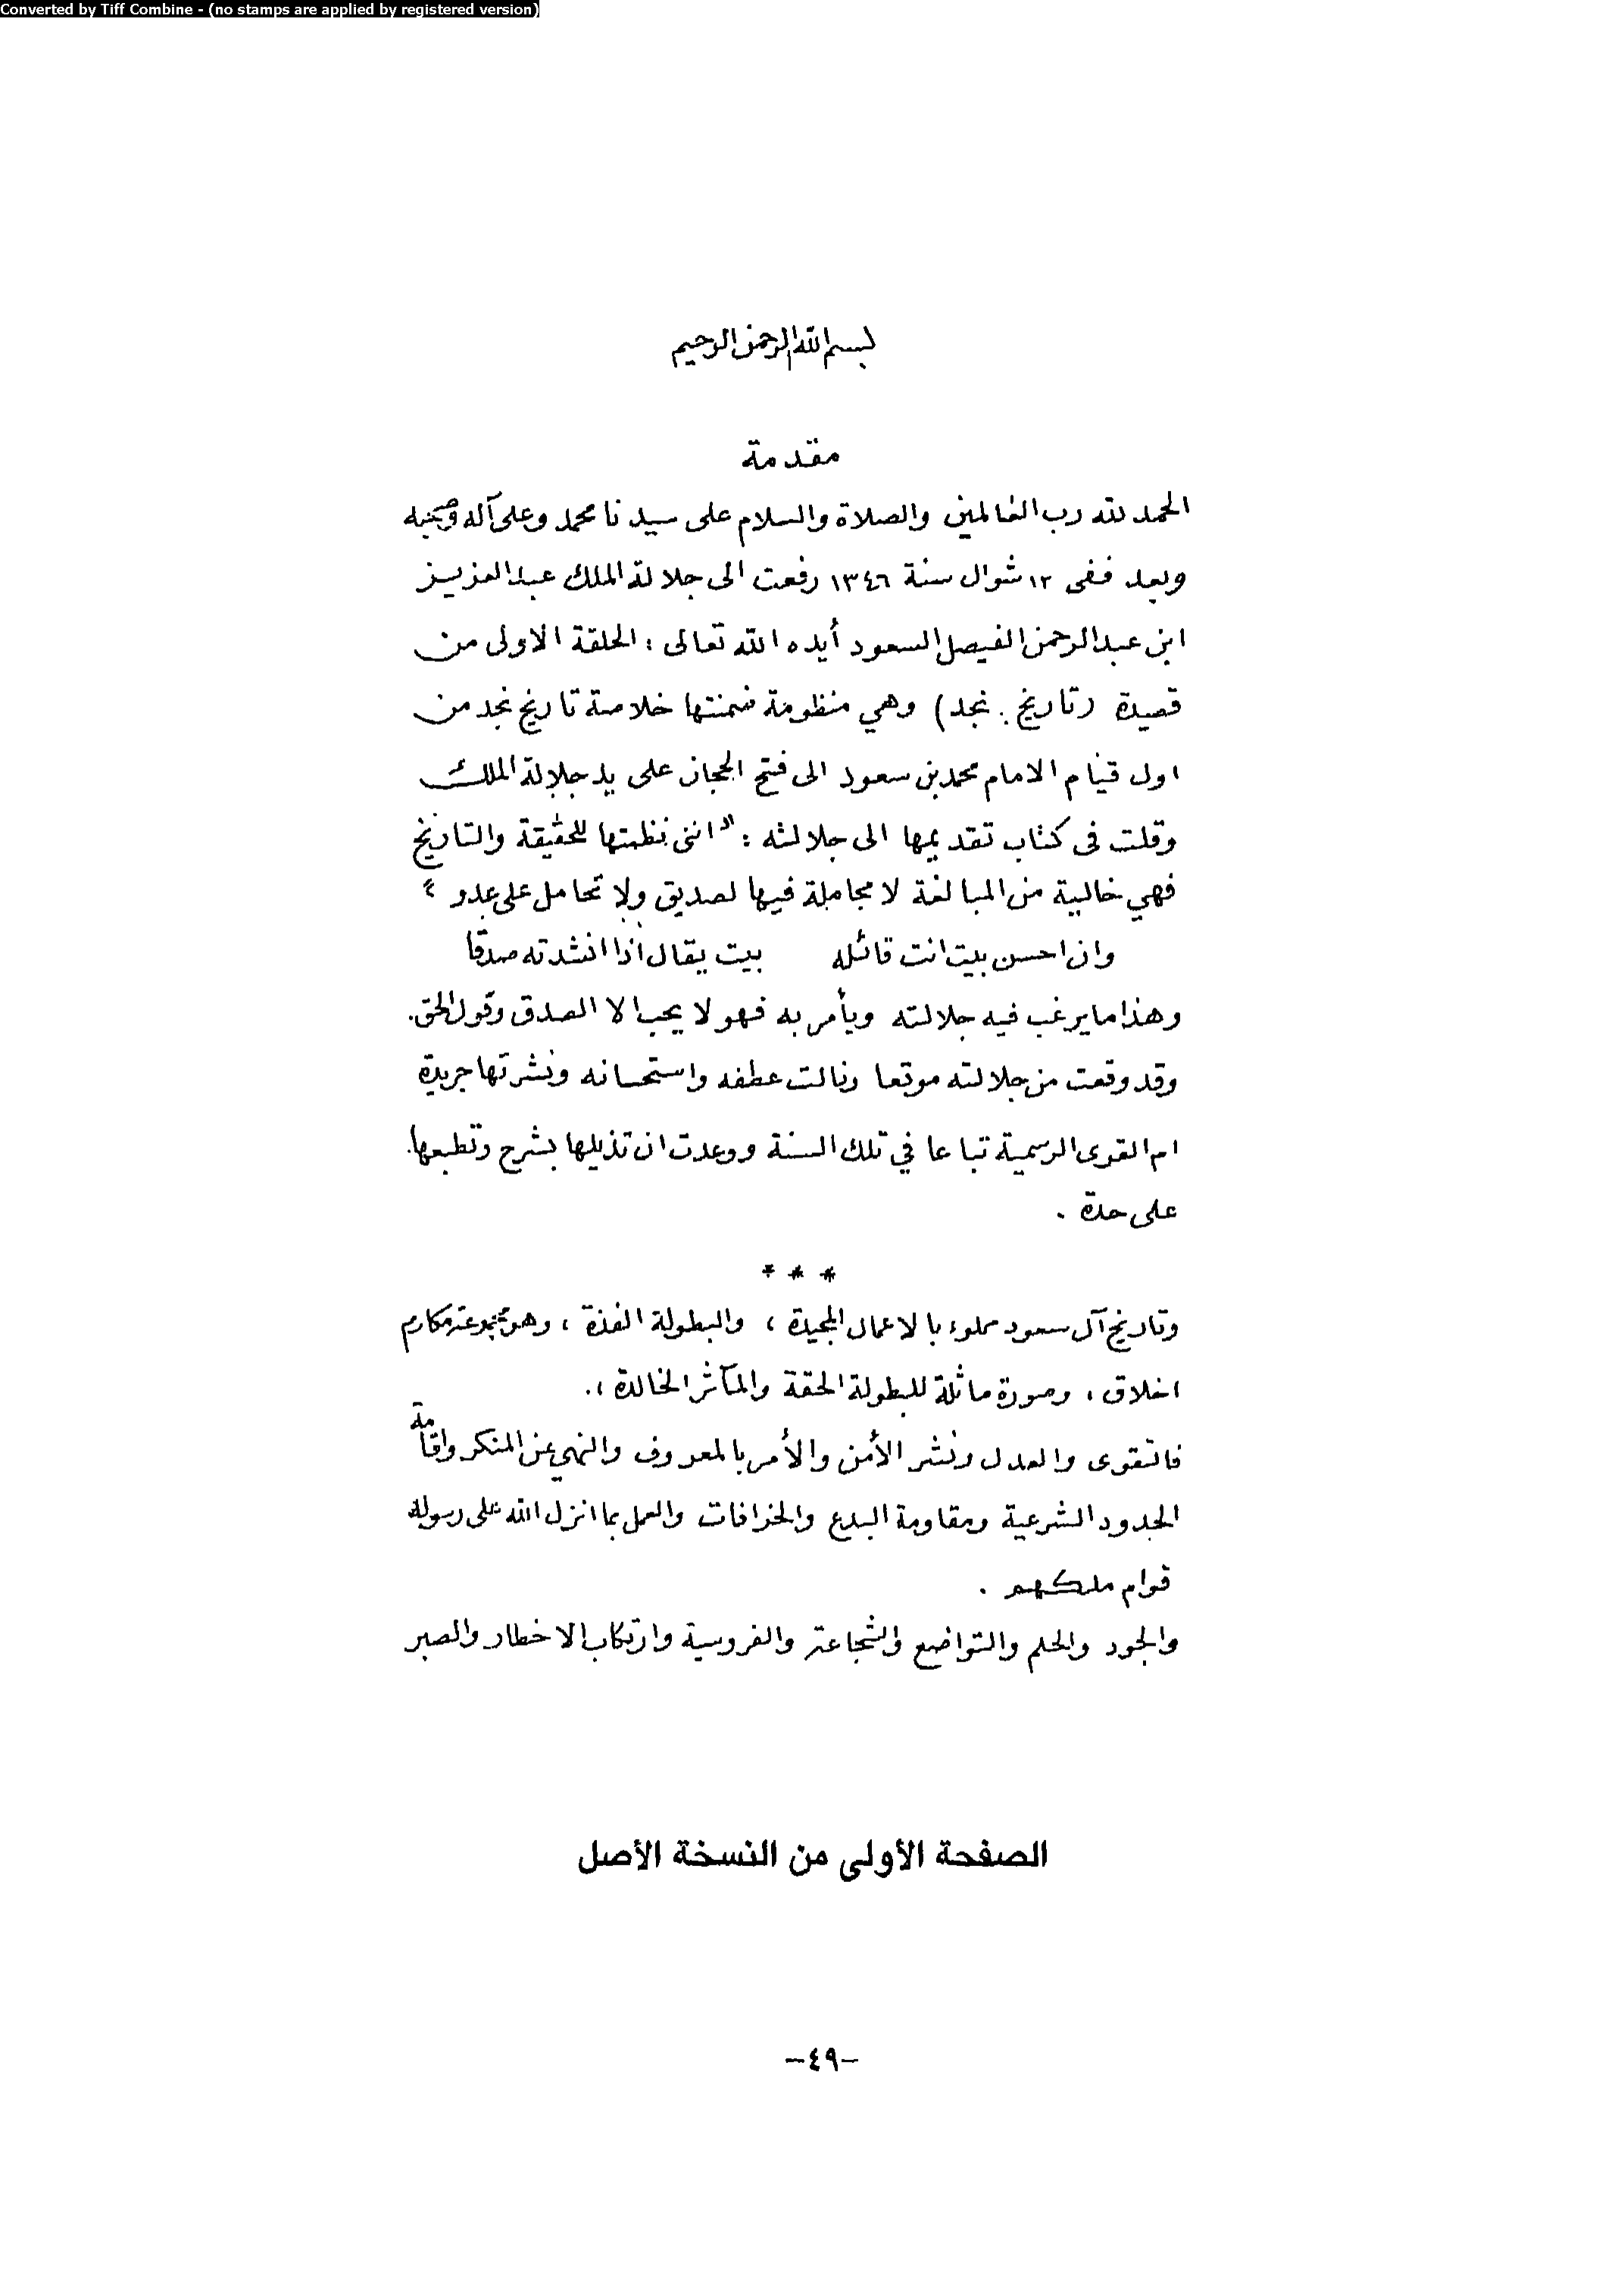 Converted by Tiff Combine - (no stamps are applied by registered version)
بسم الله الرحمن الرحيم
مقدمة
الحمد لله رب العالمين والصلاة والسلام على سيدنا محمد وعلى آله وصحبه
وبعد ففى ١٢ شوال سنة ١٣٤٦ رفعت الى جلالة الملك عبد العزيز
ابن عبد الرحمن الفيصل السعود أيده الله تعالى : الحلقة الاولى من
قصيدة (تاريخ نجد) وهي منظومة ضمنتها خلاصة تاريخ نجد من
اول قيام الامام محمد بن سعود الى فتح الحجاز على يد جلالة الملك
وقلت فى كتاب تقديمها الى جلالته : " اننى نظمتها للحقيقة والتاريخ
فهي خالية من المبالغة لا مجاملة فيها لصديق ولا تحامل على عدو "
وان احسن بيت انت قائله بيت يقال اذا انشدته صدقا
وهذا ما يرغب فيه جلالته ويأمر به فهو لا يحب الا الصدق وقول الحق .
وقد وقعت من جلالته موقعا ونالت عطفه واستحسانه ونشرتها جريدة
ام القرى الرسمية تباعا في تلك السنة ووعدت ان تذيلها بشرح وتطبعها
على حدة .
* * *
وتاريخ آل سعود مملوء بالاعمال المجيدة ، والبطولة الفذة ، وهو مجموعة مكارم
اخلاق ، وصورة ماثلة للبطولة الحقة والمآثر الخالدة ،.
فالتقوى والعدل ونشر الأمن والأمر بالمعروف والنهي عن المنكر واقامة
الحدود الشرعية ومقاومة البدع والخرافات والعمل بما انزل الله على رسوله
قوام ملكهم .
والجود والحلم والتواضع والشجاعة والفروسية وارتكاب الاخطار والصبر
الصفحة الأولى من النسخة الأصل
-٤٩-